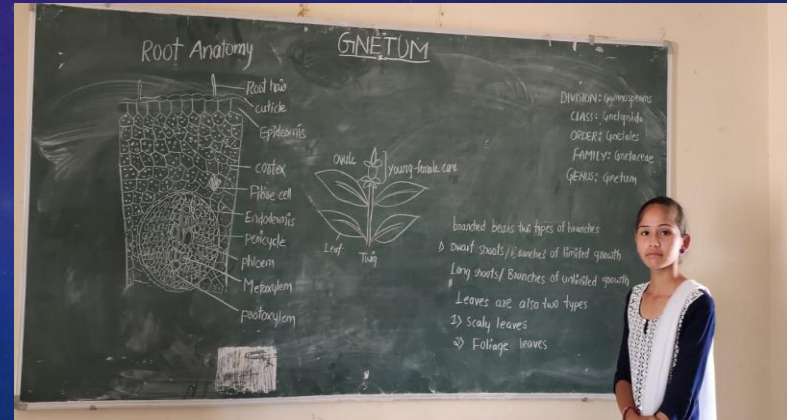 Root Anatomy
GNETUM
Root hair
cuticle
Epidermis
cortex
Fibre cell
Endodermis
pericycle
phloem
Metaxylem
protoxylem
ovule
young female cone
Leaf
Twig
DIVISION: Gymnosperms
CLASS: Gnetopsida
ORDER: Gnetales
FAMILY: Gnetaceae
GENUS: Gnetum
branched bears two types of branches
Dwarf shoots/Branches of limited growth
Long shoots/ Branches of unlimited growth
Leaves are also two types
1) Scaly leaves
2) Foliage leaves